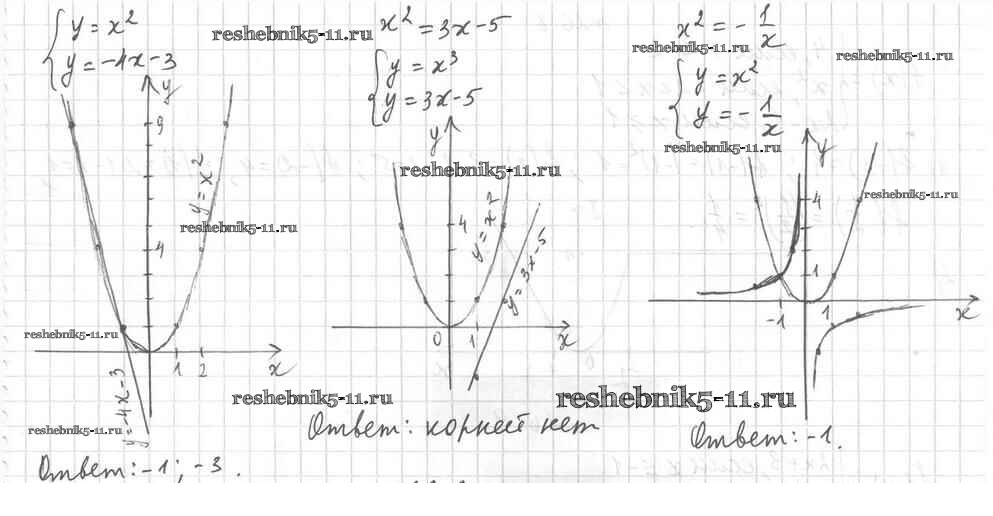 { y = x²
y = -4x-3
reshebnik5-11.ru
y
9
y = x²
reshebnik5-11.ru
4
reshebnik5-11.ru
1 2 x
y = -4x-3
reshebnik5-11.ru
reshebnik5-11.ru
Ответ: -1; -3.
x² = 3x-5
{ y = x³
y = 3x-5
y
reshebnik5-11.ru
4
y = x²
y = 3x-5
0 1 x
Ответ: корней нет
x² = - 1/x
reshebnik5-11.ru
reshebnik5-11.ru
{ y = x²
y = - 1/x
reshebnik5-11.ru
y
4
reshebnik5-11.ru
1
-1 1 x
reshebnik5-11.ru
Ответ: -1.